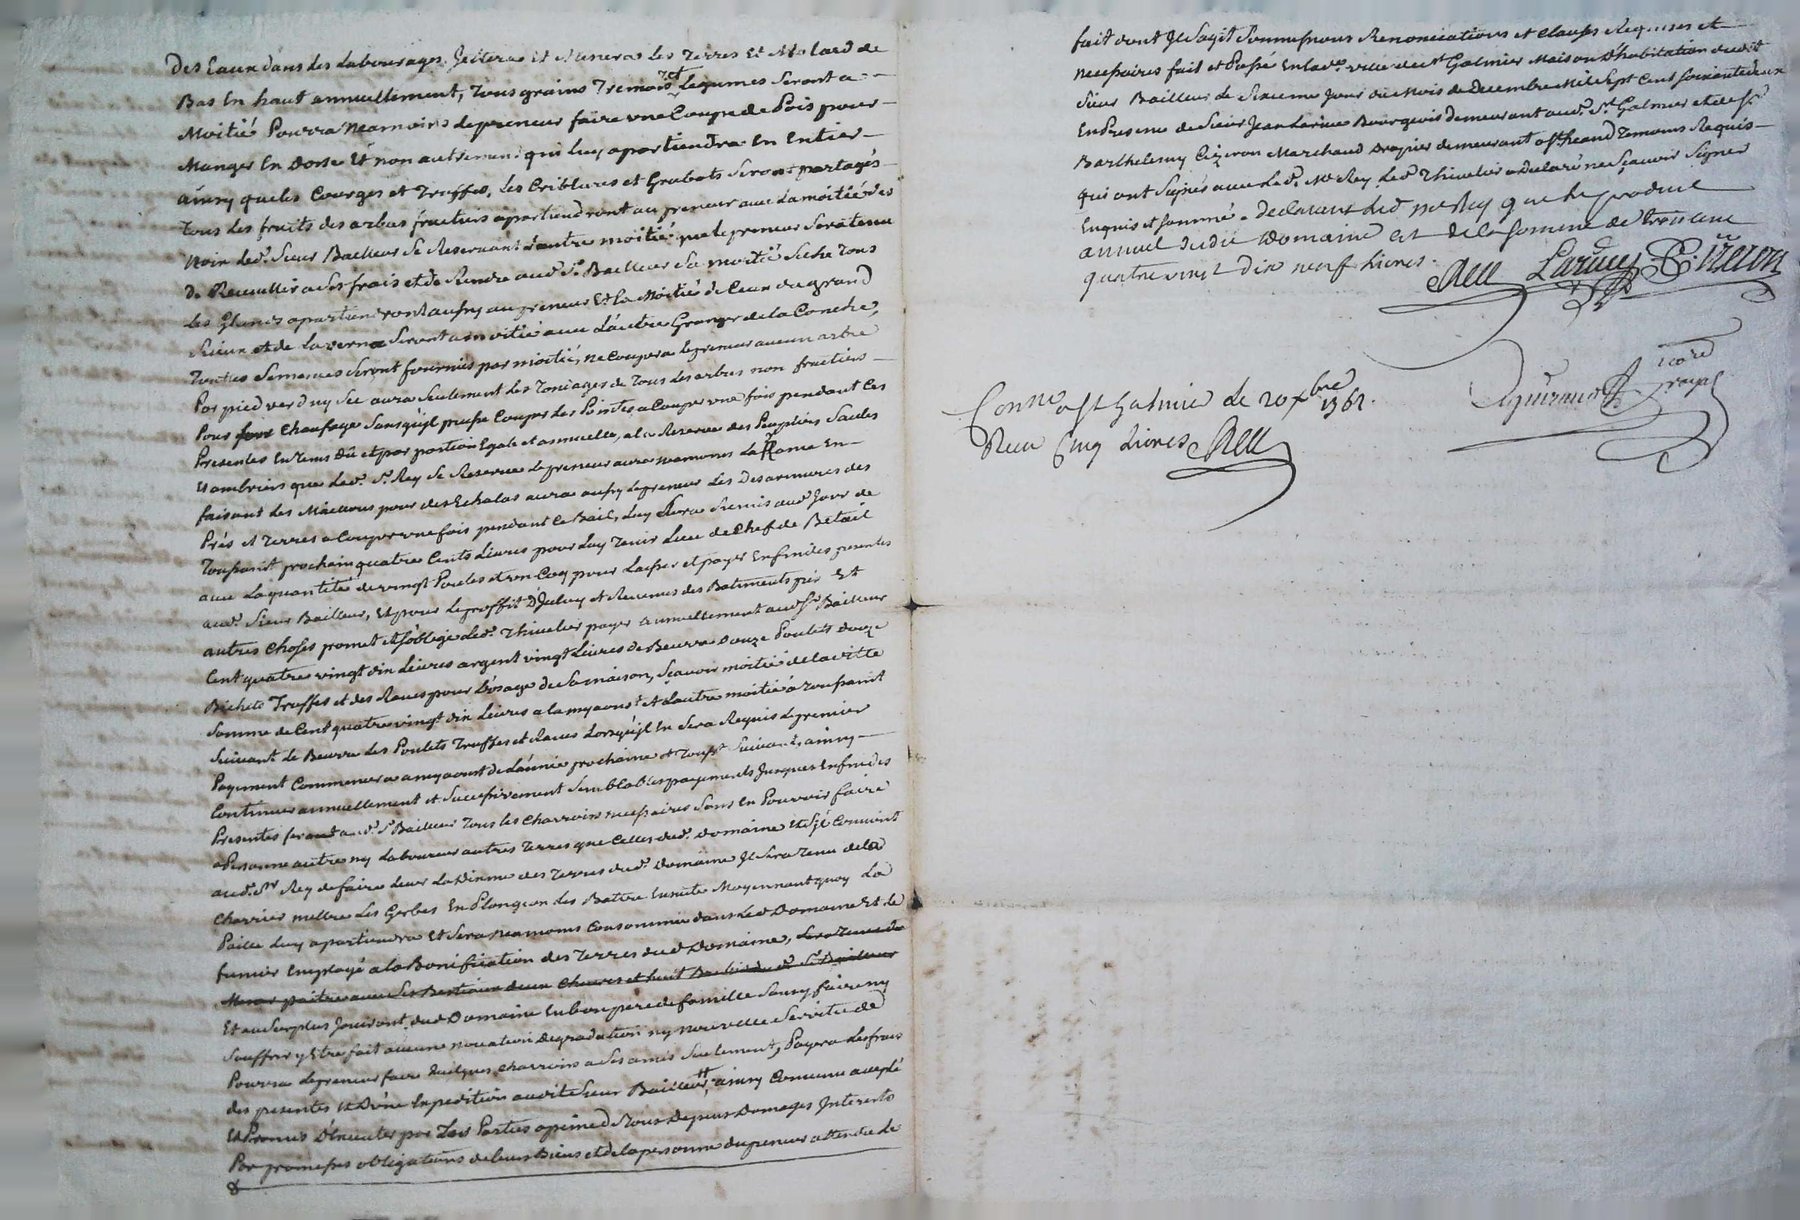 Des Eaux dans Les Labourages, Jettera et Menera Les Terres Et Molard de
Bas En haut annuellement, Tous grains Tremois et Legumes Seront a
Moitié Pourra Neamoins Le preneur faire une Coupe de Pois pour
Manger En Dosse Et non autrement qui luy apartiendra En Entier
ainsy que les Courges et Truffes, Les Criblures et Grabots Seront partagés
Tous Les fruits des arbres fruitiers apartiendront au preneur avec La moitié des
Noix Led. Sieur Bailleur Se Reservant L'autre moitié que le preneur Sera tenu
De Recueillir a Ses frais et de Rendre aud. Sr. Bailleur Sa moitié Seche Tous
Les Glands apartiendront aussy au preneur Et La Moitié de Ceux du grand
et de La verne Seront a moitié avec L'autre Granger de la Conche,
Toutes Semences Seront fournies par moitié, ne Coupera le preneur aucun arbre
Par pied verd ny Sec aura Seulement Les Toniages de Tous Les arbres non fruitiers
Pour Chaufage Sans qu'il puisse Couper Les Pointes a Couper une fois pendant Les
Presentes En Tems Dû et par portion Egale et annuelle, a la Reserve des Peupliers Saules
Et ambriers que Led. Sr. Rey Se Reserve Le preneur aura neamoins La Rame En
faisant Les Maillons pour des Echalas aura aussy Le preneur Les Desarmures des
Prés et Terres a Couper une fois pendant Ce Bail, Luy Sera Remis aud. Jour de
Toussaint prochain quatre Cents Livres pour Luy Tenir Lieu de Chef de Betail
avec La quantité de vingt Poules et un Coq pour Laisser et payer En fin des presentes
aud. Sieur Bailleur, Et pour Le proffit D'Iceluy et Revenus des Batiments prés Et
autres Choses promet et S'oblige Led. Thivelier payer annuellement aud. Sr. Bailleur
Cent quatre vingt dix Livres argent vingt Livres de Beurre Douze Poulets douze
Bichets Truffes et des Raves pour L'usage de Sa maison, Sçavoir moitié de la ditte
Somme de Cent quatre vingt dix Livres a la my aoust Et L'autre moitié a Toussaint
Suivant Le Beurre Les Poulets Truffes et Raves Lorsqu'il En Sera Requis Le premier
Payement Commencera a my aoust de L'année prochaine et Touss.t Suivant, ainsy
Continuer annuellement et Successivement Semblables payements Jusques En fin des
Presentes fera aud. Sr. Bailleur Tous les Charrois necessaires Sans En Pouvoir faire
a Personne autre ny Labourer autres Terres que Celles dud. Domaine Et S'il Convient
aud. Sr. Rey de faire Lever La Dixme des Terres dud. Domaine Il Sera Tenu de La
Charrier mettre Les Gerbes En Plongeon Les Battre Ensuite Moyennant quoy La
Paille Luy apartiendra Et Sera neamoins Consommée dans Led. Domaine Et Le
fumier Employé a la Bonification des Terres dud. Domaine, Sera Tenu de
Mener paitre avec Ses Bestiaux deux Chevres et huit Brebis dud. Sr. Bailleur
Et au Surplus Jouiront dud. Domaine En bon pere de famille Sans y faire ny
Souffrir y Etre fait aucune novation Degradation ny nouvelle Servitude
Pourra Le preneur faire quelques Charrois a Ses amis Seulement, Payera Les frais
des presentes Et D'une Expedition audit Sieur Bailleur, ainsy Convenu accepté
Et Promis D'Executer par Les Parties a peine de Tous Depens Domages Interests
Par promesses obligations de leurs Biens et de la personne du preneur attendu Le
fait dont Il S'agit Soumissions Renonciations et Clauses Requises et
Necessaires fait et Passé En lad. ville de St Galmier Maison D'habitation dudit
Sieur Bailleur Le Sixieme Jour du Mois de Decembre Mil Sept Cent Soixante deux
En Presence de Sieur Jean Larive Bourgeois demeurant aud. St. Galmier et de Sr.
Barthelemy Cizeron Marchand Drapier demeurant a St heand Temoins Requis
qui ont Signés avec Led. Me Rey, Led. Thivelier a Declaré ne Sçavoir Signer
Enquis et Sommé. Declarant Led. Me Rey que Le produit
annuel dudit Domaine est de la Somme de trois cent
quatre vingt dix neuf Livres.
Rey Larive B. Cizeron
Aguiraud Nore royal
Conne a St Galmier Le 20 Xbre 1762.
Reçu Cinq Livres Rey